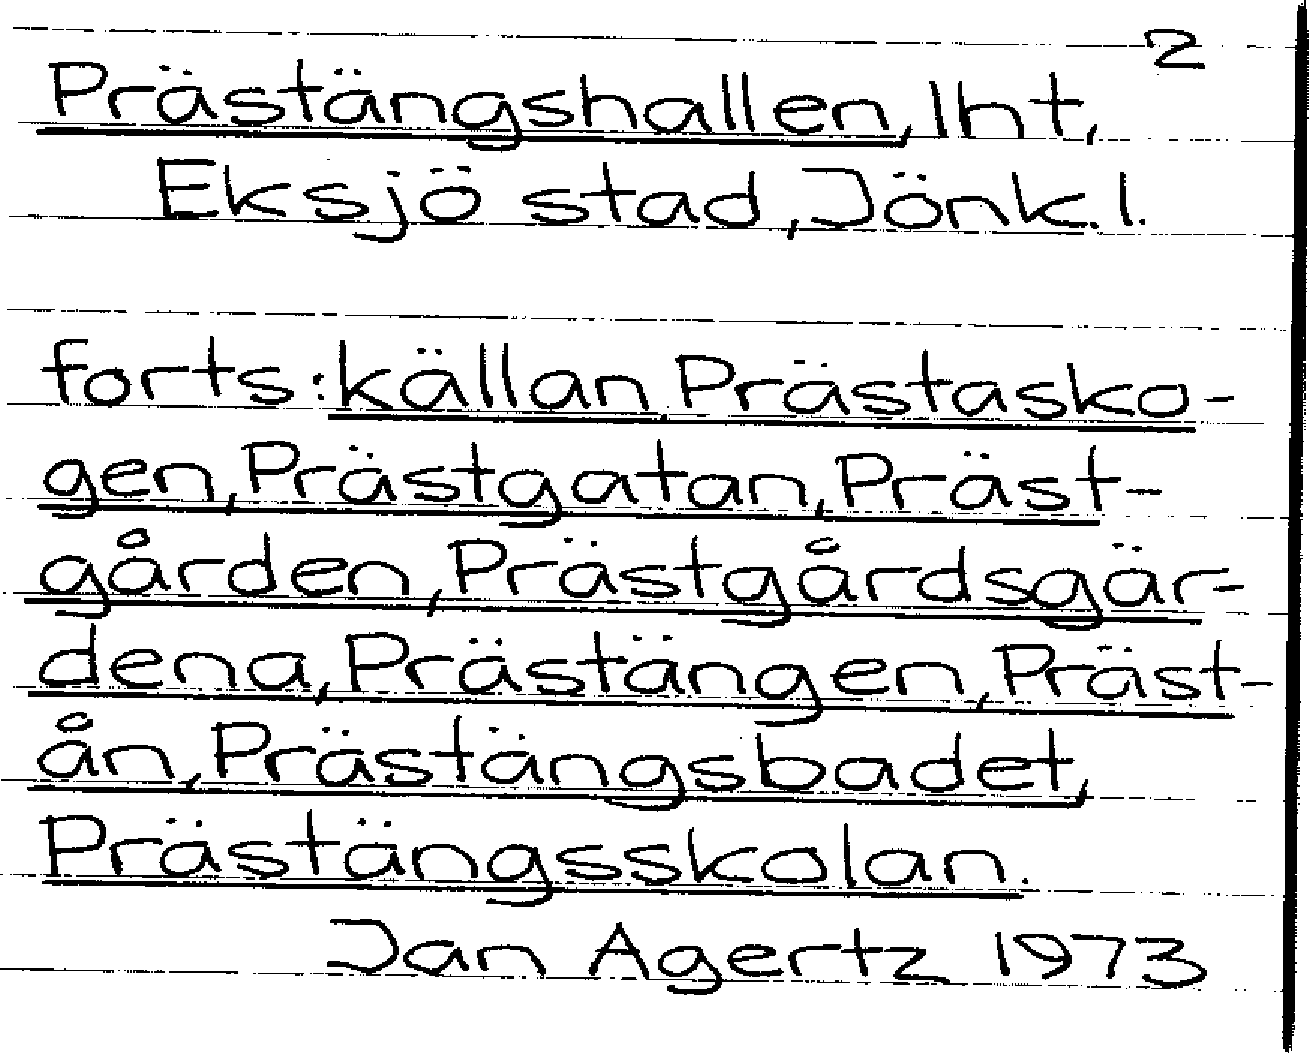 2
Prästängshallen, lht,
Eksjö stad, Jönk.l.
forts: källan Prästasko-
gen, Prästgatan, Präst-
gården, Prästgårdsgär-
dena, Prästängen, Präst-
ån, Prästängsbadet,
Prästängsskolan.
Jan Agertz 1973